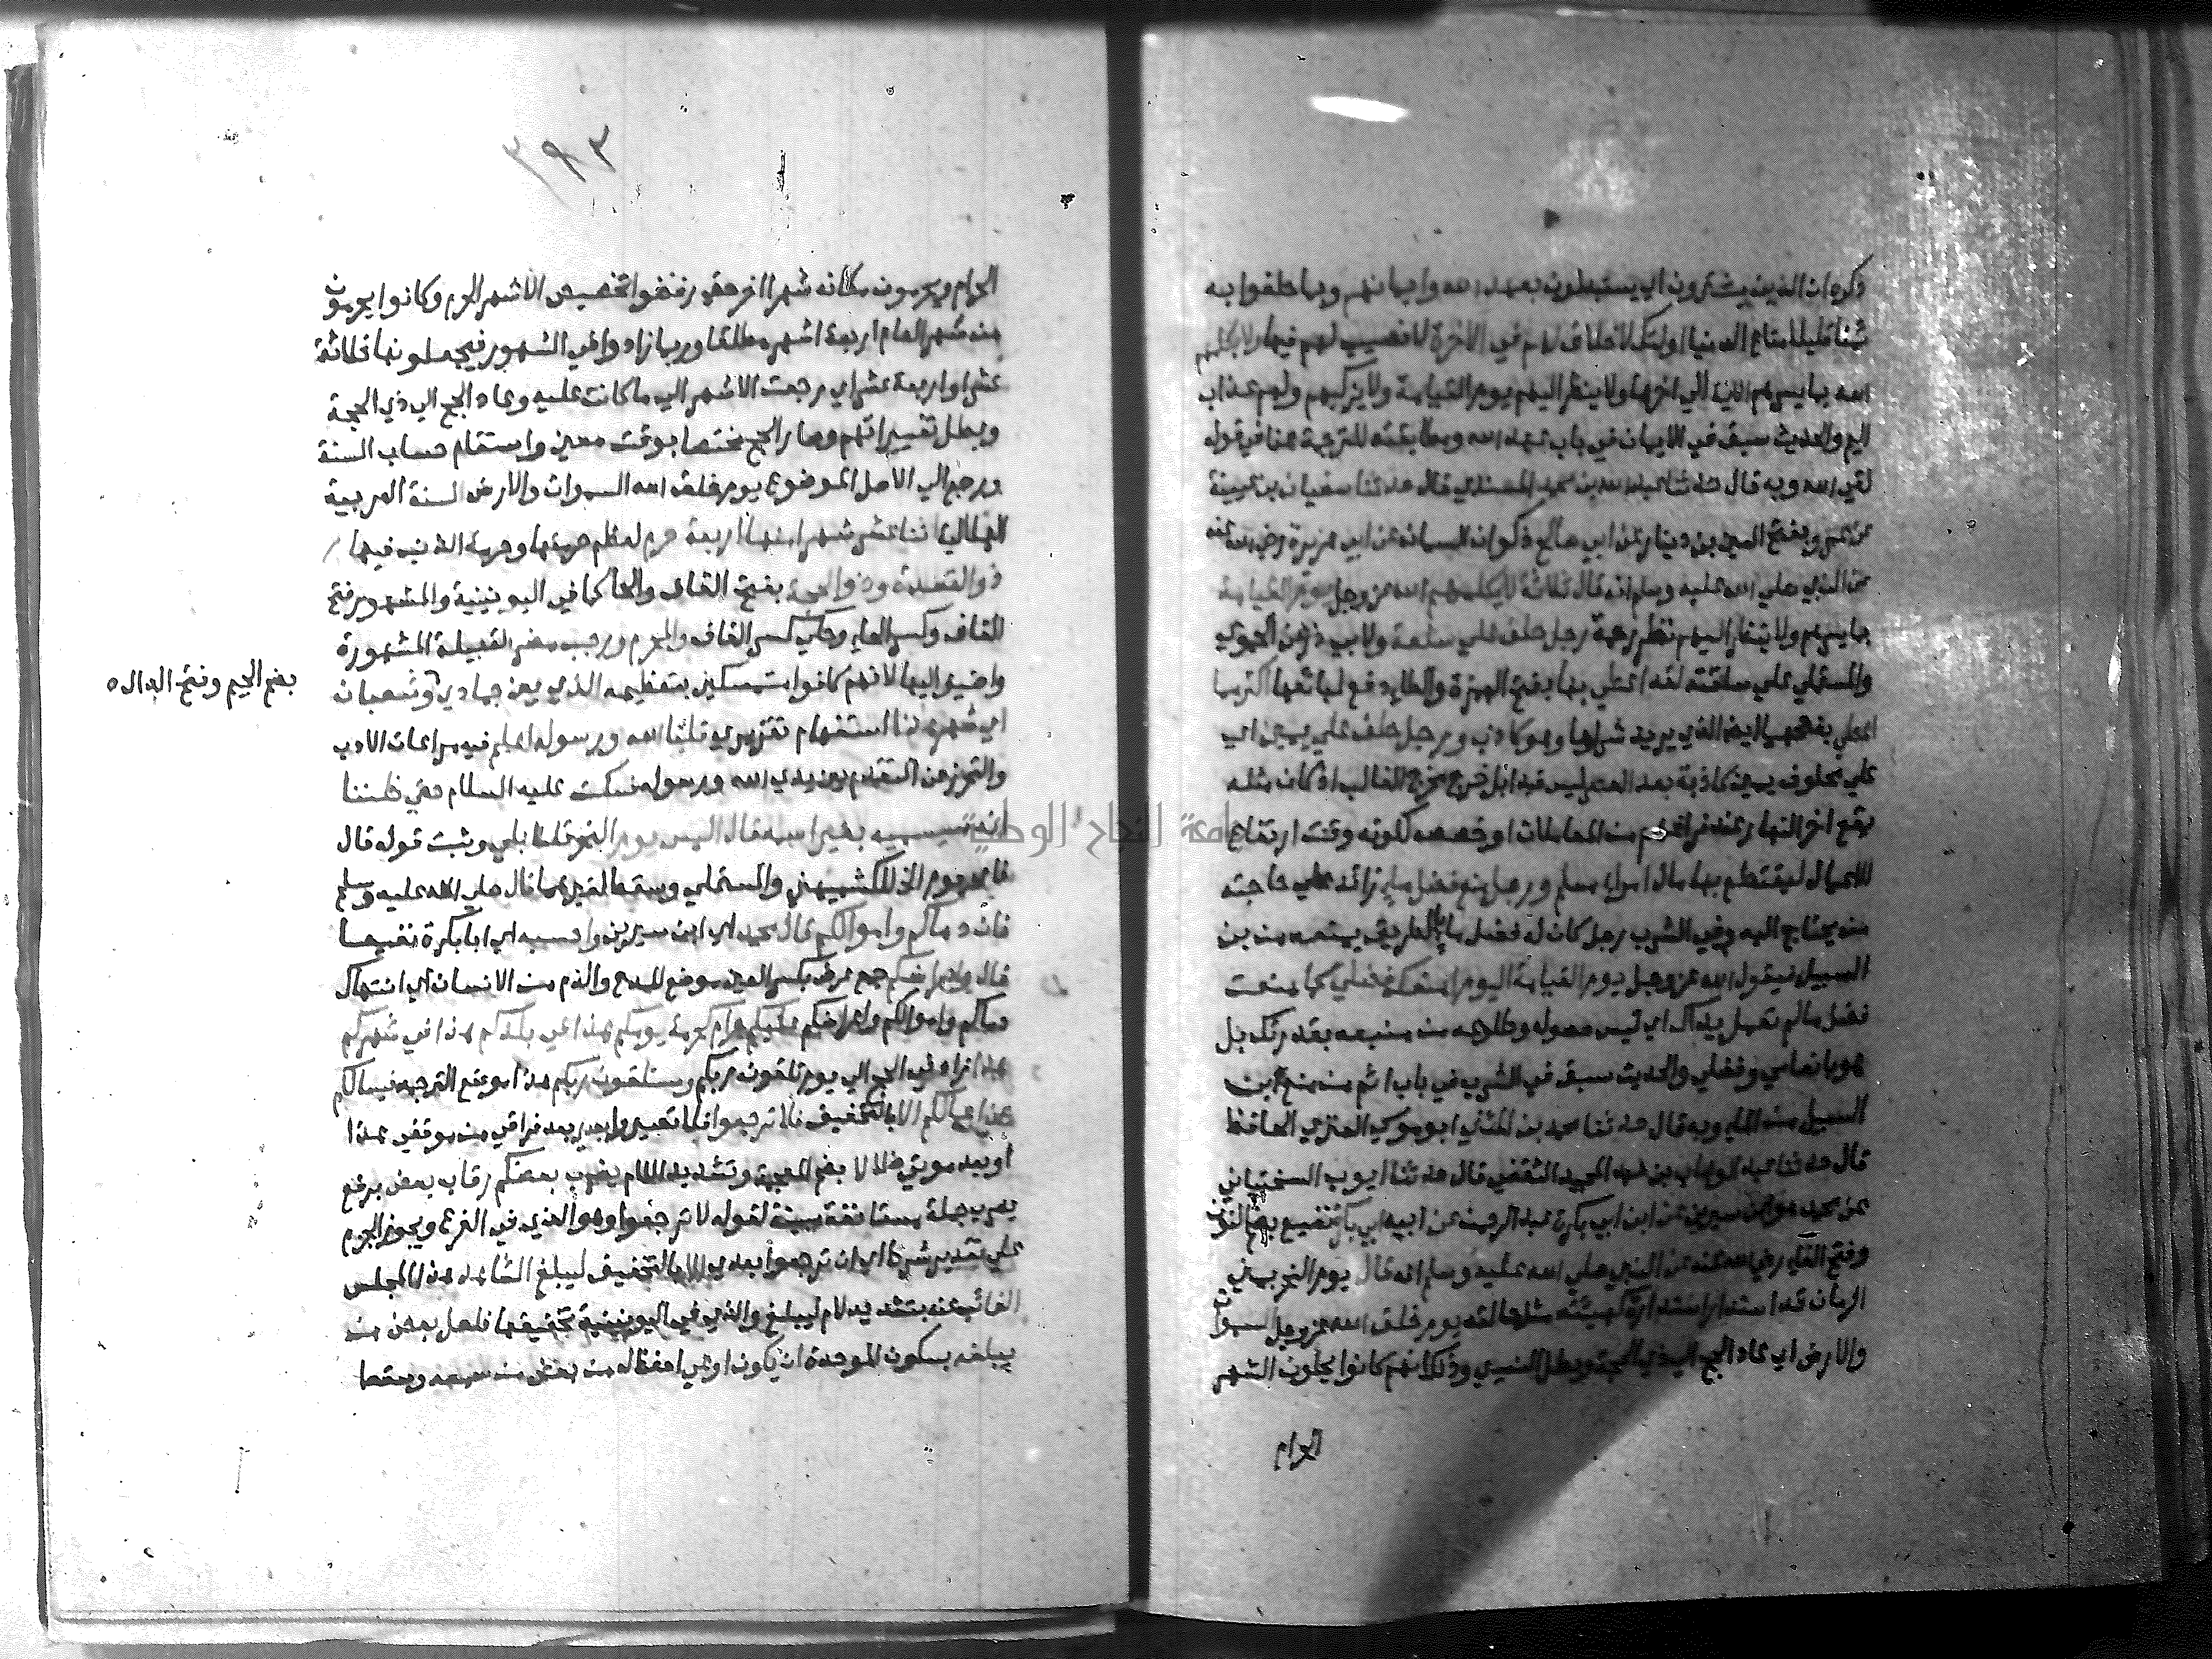 ذكره ان الذين يشترون اي يستبدلون بعهد الله وايمانهم وبما حلفوا به
ثمنا قليلا متاع الدنيا اولئك لا خلاق لهم في الاخرة لا نصيب لهم فيها ولا يكلمهم
الله بما يسرهم الاية الي اخرها ولا ينظر اليهم يوم القيامة ولا يزكيهم ولهم عذاب
اليم والحديث سبق في الايمان في باب عهد الله ومطابقته للترجمة هنا في قوله
لقي الله وبه قال حدثنا عبد الله بن محمد المسندي قال حدثنا سفيان بن عيينة
عن عمرو بفتح العين بن دينار عن ابي صالح ذكوان السمان عن ابي هريرة رضي الله عنه
عن النبي صلي الله عليه وسلم انه قال ثلاثة لا يكلمهم الله عز وجل يوم القيامة
بما يسرهم ولا ينظر اليهم نظر رحمة رجل حلف علي سلعة ولابي ذر عن الحموي
والمستملي علي سلعته لقد اعطي بها بفتح الهمزة والطاء دفع لبائعها اكثر مما
اعطي بفتحهما ايضا الذي يريد شراها وهو كاذب ورجل حلف علي يمين اي
علي محلوف يمين كاذبة بعد العصر ليس قيدا بل خرج مخرج الغالب اذ كان مثله
يقع اخر النهار عند فراغهم من المعاملات او خصصه لكونه وقت ارتفاع
الاعمال ليقتطع بها مال امرئ مسلم ورجل منع فضل ماء زائد علي حاجته
من يحتاج اليه وفي الشرب رجل كان له فضل ماء بالطريق يمنعه من بن
السبيل فيقول الله عز وجل يوم القيامة اليوم امنعك فضلي كما منعت
فضل ما لم تعمل يداك اي ليس حصوله وطلوعه من منبعه بقدرتك بل
هو بانعامي وفضلي والحديث سبق في الشرب في باب اثم من منع ابن
السبيل من الماء وبه قال حدثنا محمد بن المثني ابو موسي العنزي الحافظ
قال حدثنا عبد الوهاب بن عبد المجيد الثقفي قال حدثنا ايوب السختياني
عن محمد هو ابن سيرين عن ابن ابي بكرة عبد الرحمن عن ابيه ابي بكرة نفيع بضم النون
وفتح الفاء رضي الله عنه عن النبي صلي الله عليه وسلم انه قال يوم النحر بمني
الزمان قد استدار استدارة كهيئته مثل حالته يوم خلق الله عز وجل السموات
والارض اي عاد الحج الي ذي الحجة وبطل النسيئ وذلك انهم كانوا يحلون الشهر
الحرام
٣٩٣
الحرام ويحرمون مكانه شهرا اخر حتي رفضوا تخصيص الاشهر الحرم وكانوا يحرمون
من شهور العام اربعة اشهر مطلقا وربما زادوا في الشهور فيجعلونها ثلاثة
عشر او اربعة عشر اي رجعت الاشهر الي ما كانت عليه وعاد الحج الي ذي الحجة
وبطل تغييراتهم وصار الحج مختصا بوقت معين واستقام حساب السنة
ورجع الي الاصل الموضوع يوم خلق الله السموات والارض السنة العربية
الهلالية اثنا عشر شهرا منها اربعة حرم لعظم حرمتها وحرمة الذنب فيها
ذو القعدة وذو الحجة بفتح القاف والحا كما في اليونينية والمشهور فتح
القاف وكسر الحاء وحكي كسر القاف والمحرم ورجب مضر القبيلة المشهورة
واضيف اليها لانهم كانوا متمسكين بتعظيمه الذي بين جمادي وشعبان
بضم الجيم وفتح الدال ه
اي شهر هذا استفهام تقريري قلنا الله ورسوله اعلم فيه مراعات الادب
والتحرز عن التقدم بين يدي الله ورسوله فسكت عليه السلام حتي ظننا
انه سيسميه بغير اسمه قال اليس يوم النحر قلنا بلي وثبت قوله قال
فاي يوم الخ للكشميهني والمستملي وسقط لغيرهما قال صلي الله عليه وسلم
فان دماكم واموالكم قال محمد اي ابن سيرين واحسبه اي ابا بكرة نفيعا
قال واعراضكم جمع عرض بكسر العين موضع المدح والذم من الانسان اي انتهاك
دماكم واموالكم واعراضكم عليكم حرام كحرمة يومكم هذا في بلدكم هذا في شهركم
هذا زاد في الحج الي يوم تلقون ربكم وستلقون ربكم هذا موضع الترجمة فيسالكم
عن اعمالكم الا بالتخفيف فلا ترجعوا فلا تصيروا بعدي بعد فراقي من موقفي هذا
او بعد موتي ضلالا بضم المعجمة وتشديد اللام يضرب بعضكم رقاب بعض برفع
يضرب جملة مستانفة مبينة لقوله لا ترجعوا وهو الذي في الفرع ويجوز الجزم
علي تقدير شرط اي ان ترجعوا بعدي الا بالتخفيف ليبلغ الشاهد هذا المجلس
الغائب عنه بتشديد لام ليبلغ والذي في اليونينية تخفيفها فلعل بعض من
يبلغه بسكون الموحدة ان يكون اوعي احفظ له من بعض من سمعه وسقط
جامعة النجاح الوطنية